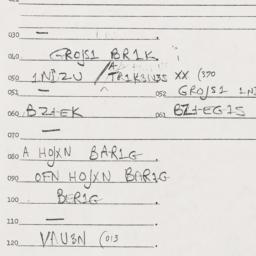 030 —
040 GROJS1 BR1K
050 1NIZU / TR1K3U3S XX (370
051 — 052 GROJS1 1NI
060 BZ+EK 061 BZ+EG1S
070 —
080 A HOJXN BAR1G
090 OFN HOJXN BAR1G
BER1G
100
110 —
120 VAU3N (013